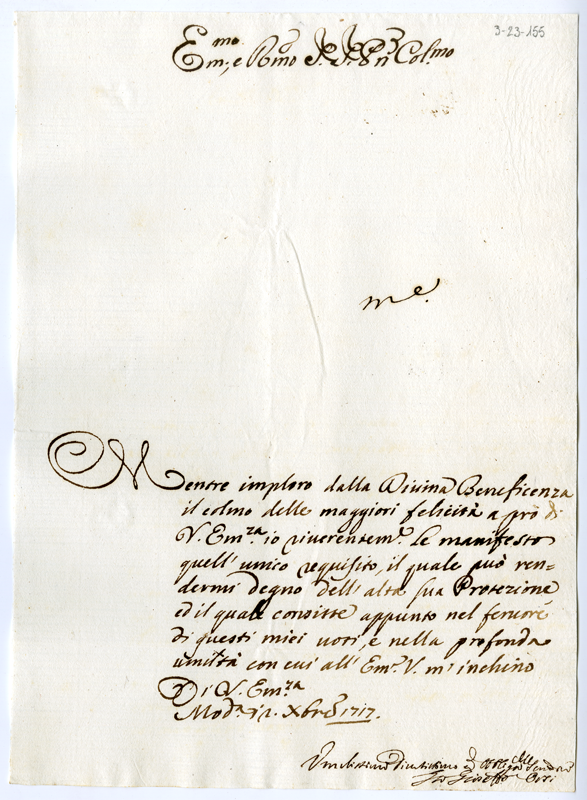 3-23-155
Em.mo e R.mo S.r S.r P.ron Col.mo
m e.
Mentre imploro dalla Divina Beneficenza
il colmo delle maggiori felicità a prò di
V. Em.za io riverentem.e le manifesto
quell' unico requisito, il quale può ren=
dermi degno dell' alta sua Protezione
ed il quale consiste appunto nel fervore
di questi miei voti, e nella profonda
umiltà con cui all' Em.a V. m' inchino
Di V. Em.za
Mod.a 12. Xbre 1717.
Umilissimo Divotissimo ed Obblig.mo Servidore
Gio Gioseffo Orsi